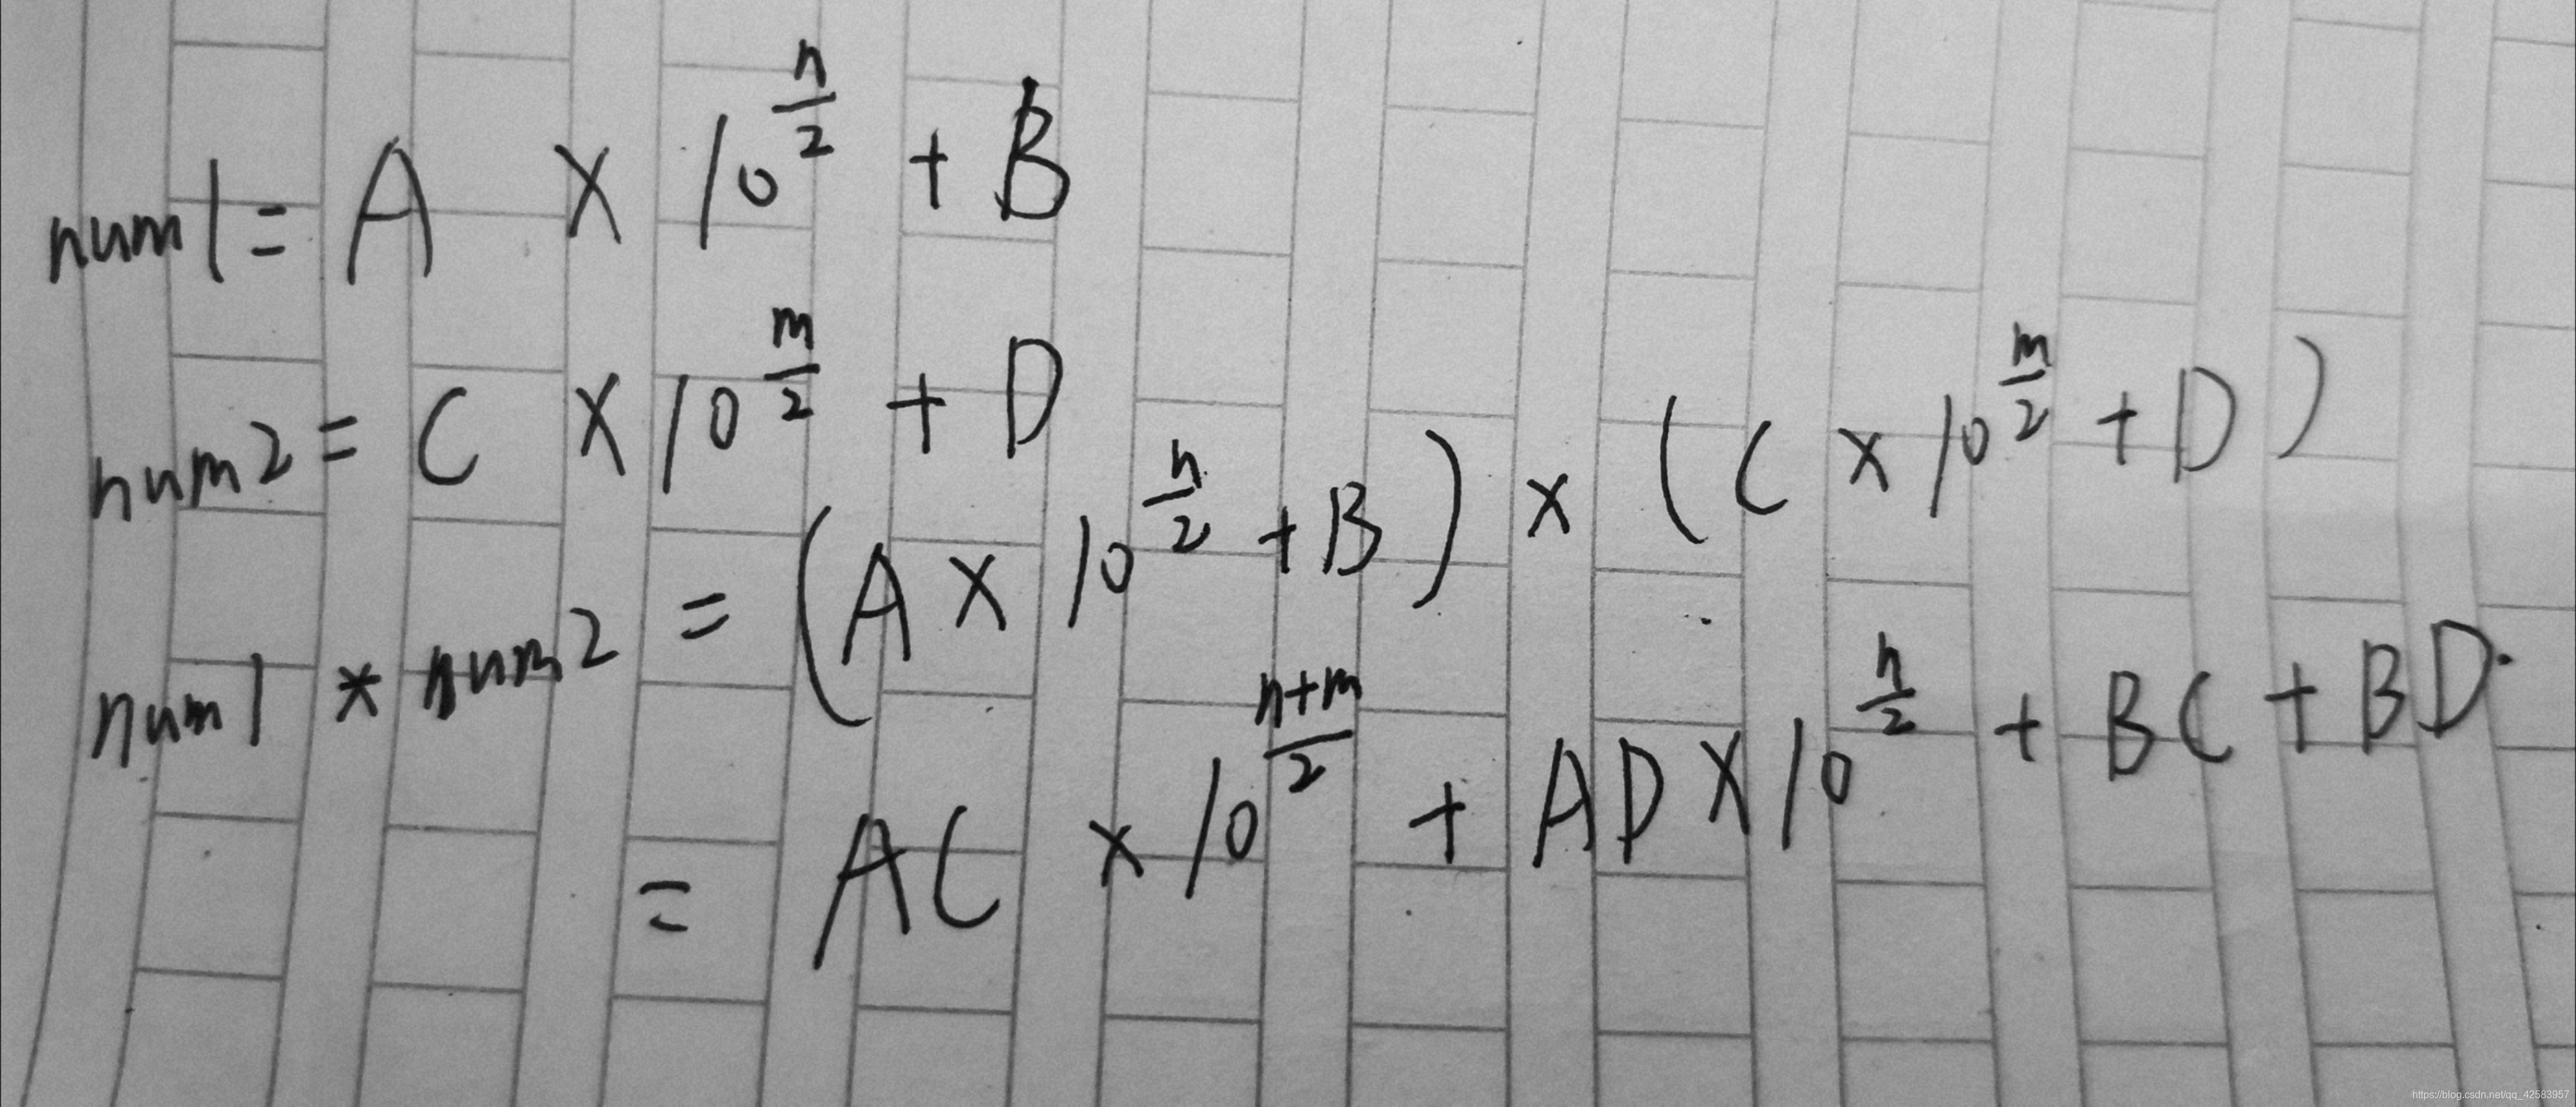 num1 = A × 10^(n/2) + B
num2 = C × 10^(m/2) + D
num1 * num2 = (A × 10^(n/2) + B) × (C × 10^(m/2) + D)
= AC × 10^((n+m)/2) + AD × 10^(n/2) + BC + BD.
https://blog.csdn.net/qq_42583957